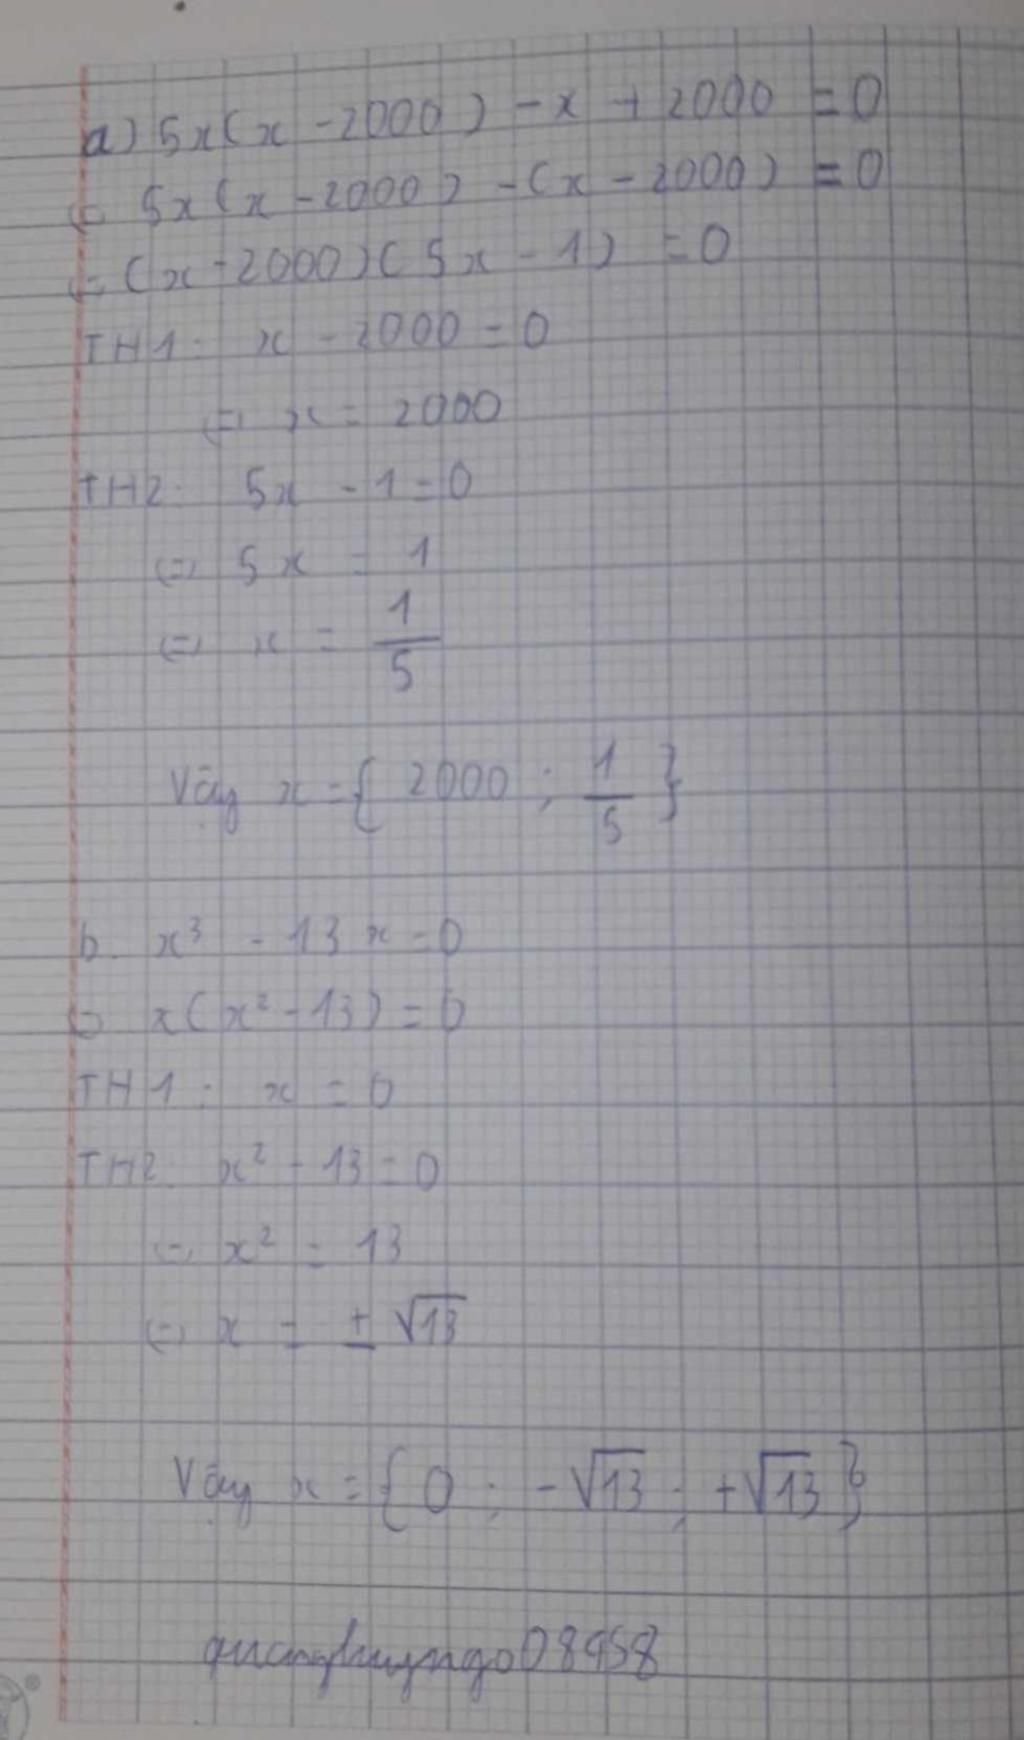 a) 5x(x - 2000) - x + 2000 = 0
⇔ 5x(x - 2000) - (x - 2000) = 0
⇔ (x - 2000)(5x - 1) = 0
TH1: x - 2000 = 0
⇔ x = 2000
TH2: 5x - 1 = 0
⇔ 5x = 1
⇔ x = 1/5
Vậy x = { 2000 ; 1/5 }
b. x³ - 13x = 0
⇔ x(x² - 13) = 0
TH1: x = 0
TH2: x² - 13 = 0
⇔ x² = 13
⇔ x = ± √13
Vậy x = { 0 ; -√13 ; +√13 }
quanghuyngo08958